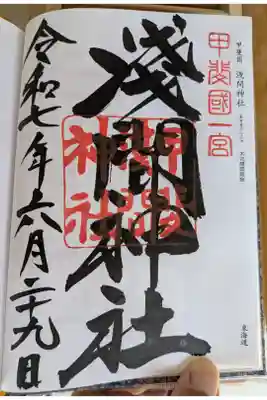 甲斐國一宮
甲斐国 浅間神社
東海道
淺間神社
淺間神社
令和七年六月二十九日